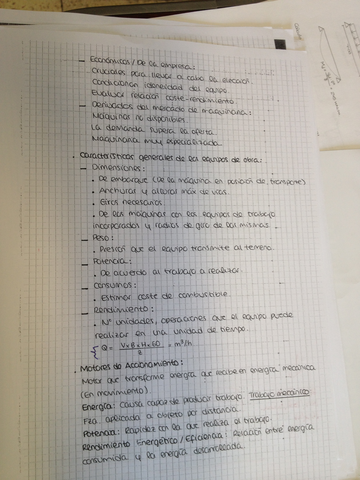 – Económicos / De la empresa:
Cruciales para llevar a cabo la elección
Condicionan idoneidad del equipo
Evaluar relación coste-rendimiento.
– Derivados del mercado de maquinaria:
Máquinas no disponibles
La demanda supera la oferta
Maquinaria muy especializada.
. Características generales de los equipos de obra:
– Dimensiones:
• De embarque (De la máquina en posición de transporte)
• Anchuras y alturas máx de uso
• Giros necesarios
• De las máquinas con los equipos de trabajo
incorporados y radios de giro de las mismas.
– Peso:
• Presión que el equipo transmite al terreno.
– Potencia:
• De acuerdo al trabajo a realizar.
– Consumos:
• Estimar coste de combustible.
– Rendimiento:
• Nº unidades, operaciones que el equipo puede
realizar en una unidad de tiempo.
Q = VxBxHx60 / = m³/h
. Motores de Accionamiento:
Motor que transforme energía que recibe en energía mecánica
(en movimiento).
Energía: Causa capaz de producir trabajo Trabajo mecánico:
Fza aplicada a objeto por distancia.
Potencia: Rapidez con la que realiza el trabajo.
Rendimiento Energético / Eficiencia: Relación entre energía
consumida y la energía desarrollada.